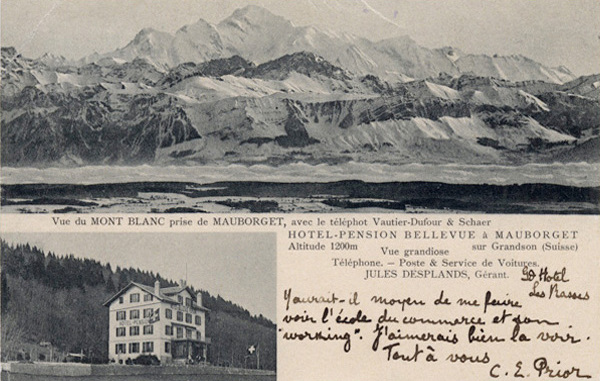 Vue du MONT BLANC prise de MAUBORGET, avec le téléphot Vautier-Dufour & Schaer
HOTEL-PENSION BELLEVUE à MAUBORGET
Altitude 1200m Vue grandiose sur Grandson (Suisse)
Téléphone. — Poste & Service de Voitures.
JULES DESPLANDS, Gérant.
Hotel
Les Rasses
Y aurait-il moyen de me faire
voir l'école du commerce et son
"working". J'aimerais bien la voir.
Tout à vous
C. E. Prior